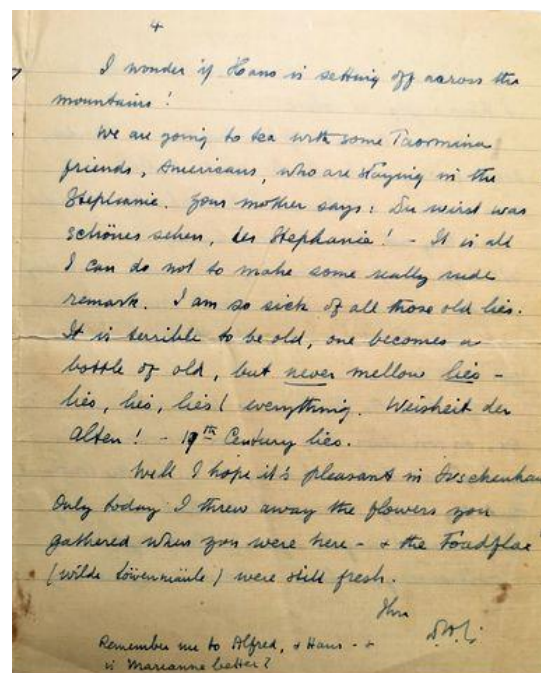 4
I wonder if Hans is setting off across the
mountains!
We are going to tea with some Taormina
friends, Americans, who are staying in the
Stephanie. Your mother says: Du wirst was
schönes sehen, des Stephanie! - It is all
I can do not to make some really rude
remark. I am so sick of all those old lies.
It is terrible to be old, one becomes a
bottle of old, but never mellow lies -
lies, lies, lies! everything. Weisheit der
Alten! - 19th Century lies.
Well I hope it's pleasant in
Only today I threw away the flowers you
gathered when you were here - + the Toadflax
(wilde Löwenmäule) were still fresh.
Ihr
D.H.L.
Remember me to Alfred, + Hans - +
is Marianne better?